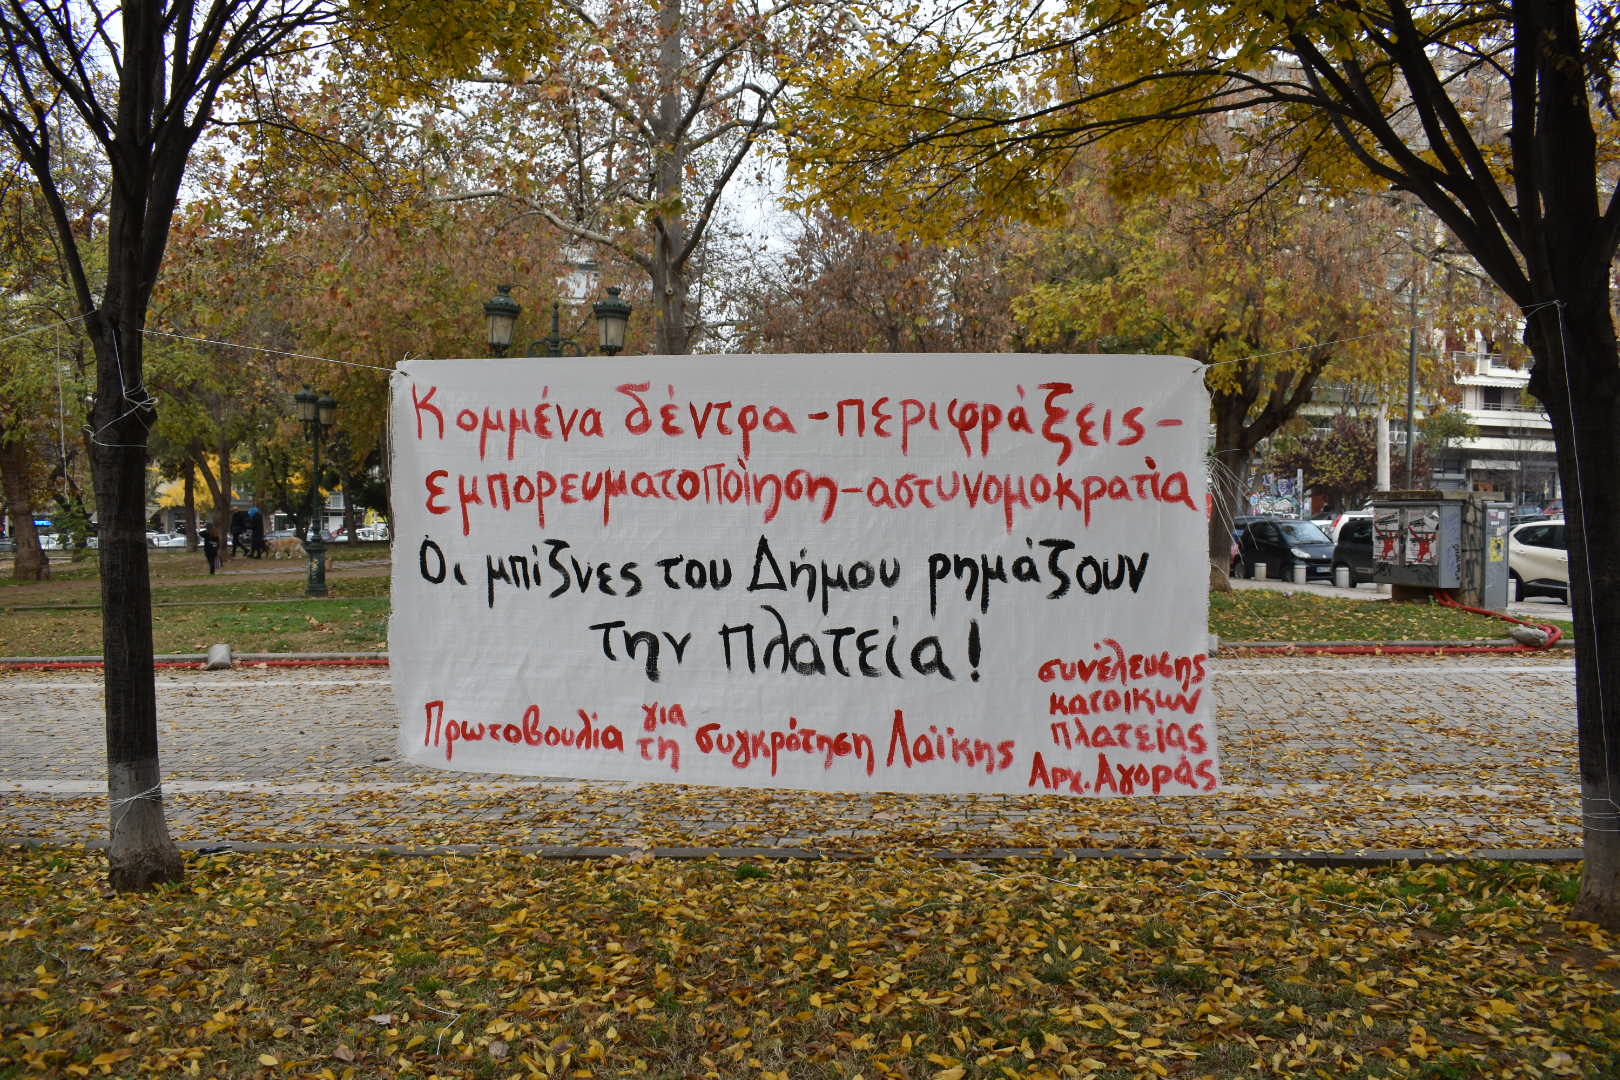 Κομμένα δέντρα - περιφράξεις -
εμπορευματοποίηση - αστυνομοκρατία
Οι μπίζνες του Δήμου ρημάζουν
την πλατεία!
Πρωτοβουλία για τη συγκρότηση Λαϊκης
συνέλευσης
κατοικων
πλατείας
Αρχ. Αγοράς